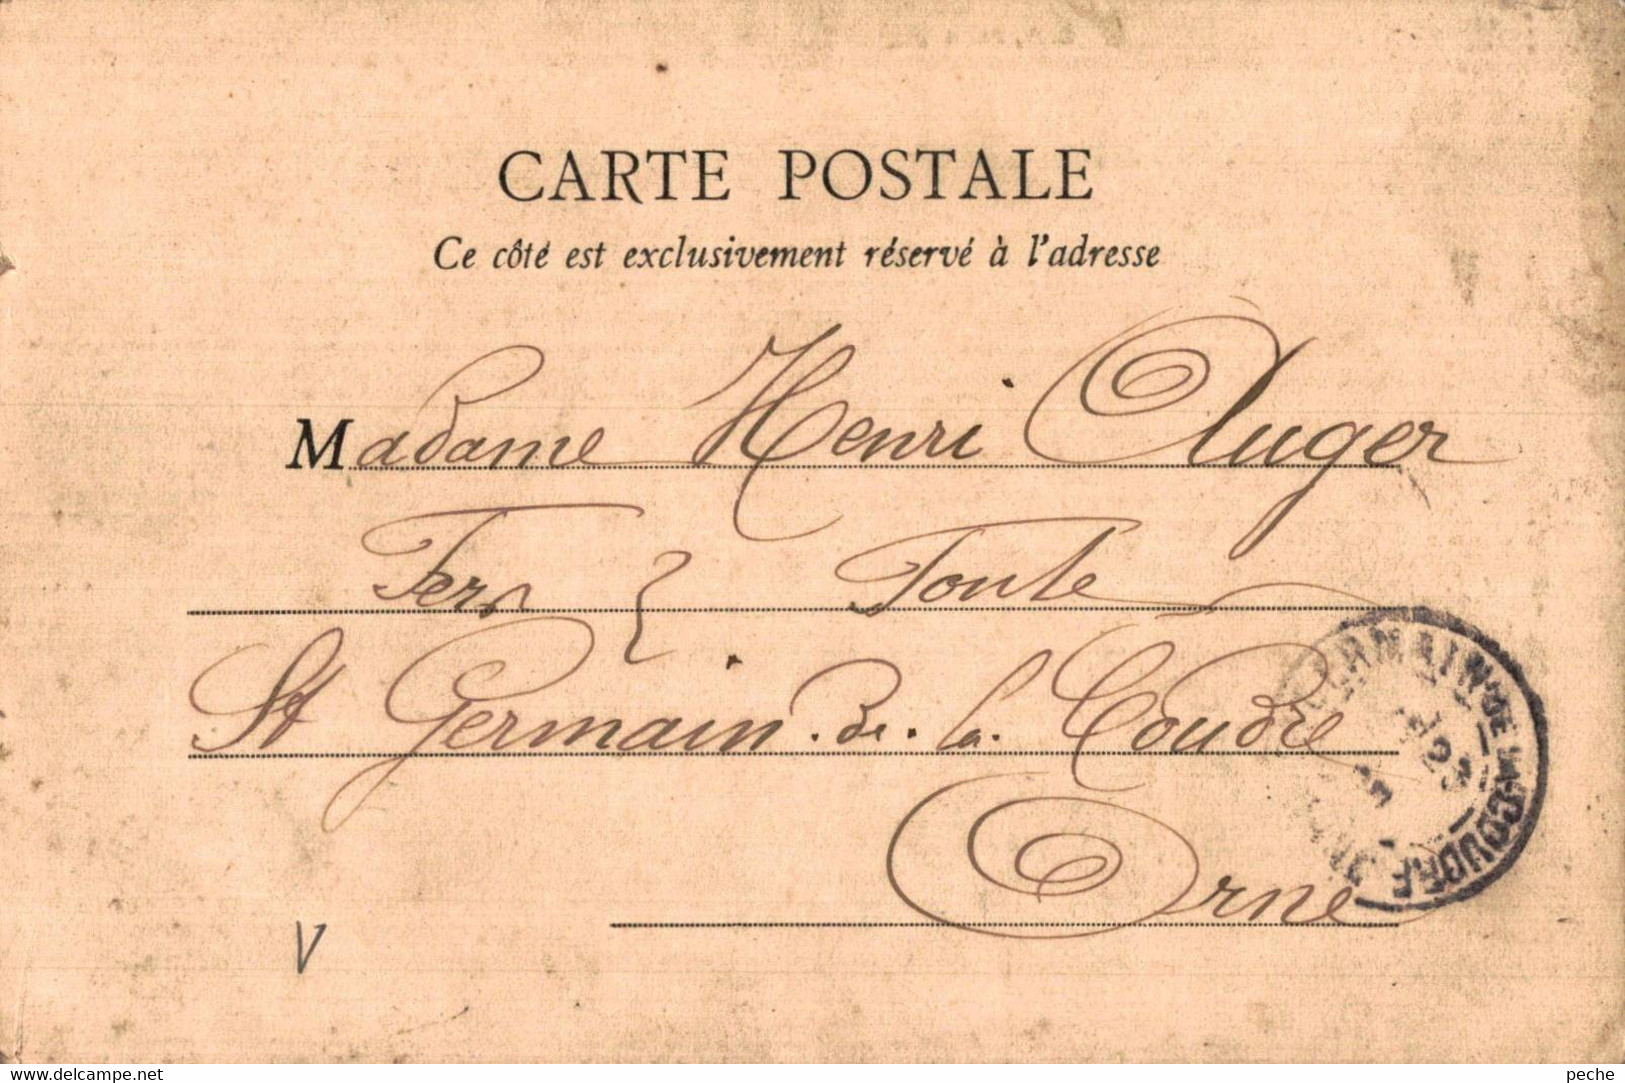 CARTE POSTALE
Ce côté est exclusivement réservé à l'adresse
Madame Henri Auger
Fers } Fonte
St Germain. de. la. Coudre
Orne
GERMAIN DE LA COUDRE
V
www.delcampe.net
peche